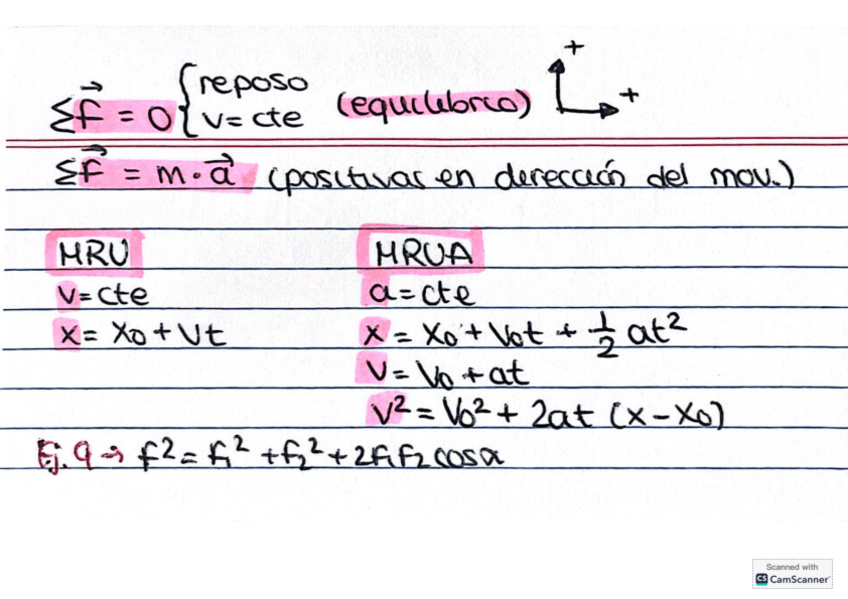 Σf⃗ = 0 { reposo
v = cte (equilibrio) + +
ΣF⃗ = m · a⃗ (positivas en dirección del mov.)
MRU MRUA
v = cte a = cte
x = x₀ + vt x = x₀ + v₀t + 1/2 at²
v = v₀ + at
v² = v₀² + 2at (x - x₀)
Ej. 9 → f² = f₁² + f₂² + 2f₁f₂ cosα
Scanned with
CS CamScanner